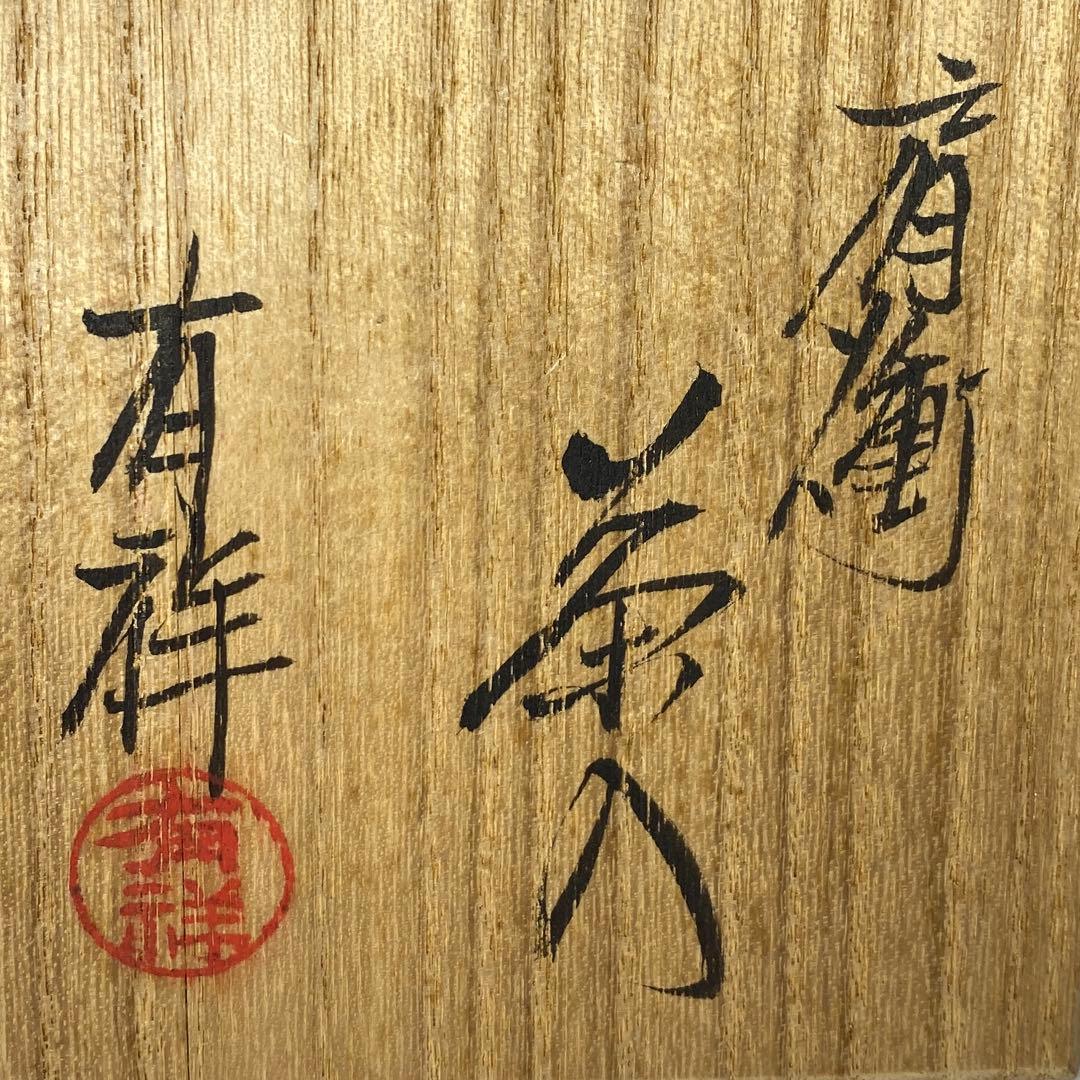 肩衝
茶入
有祥
有祥